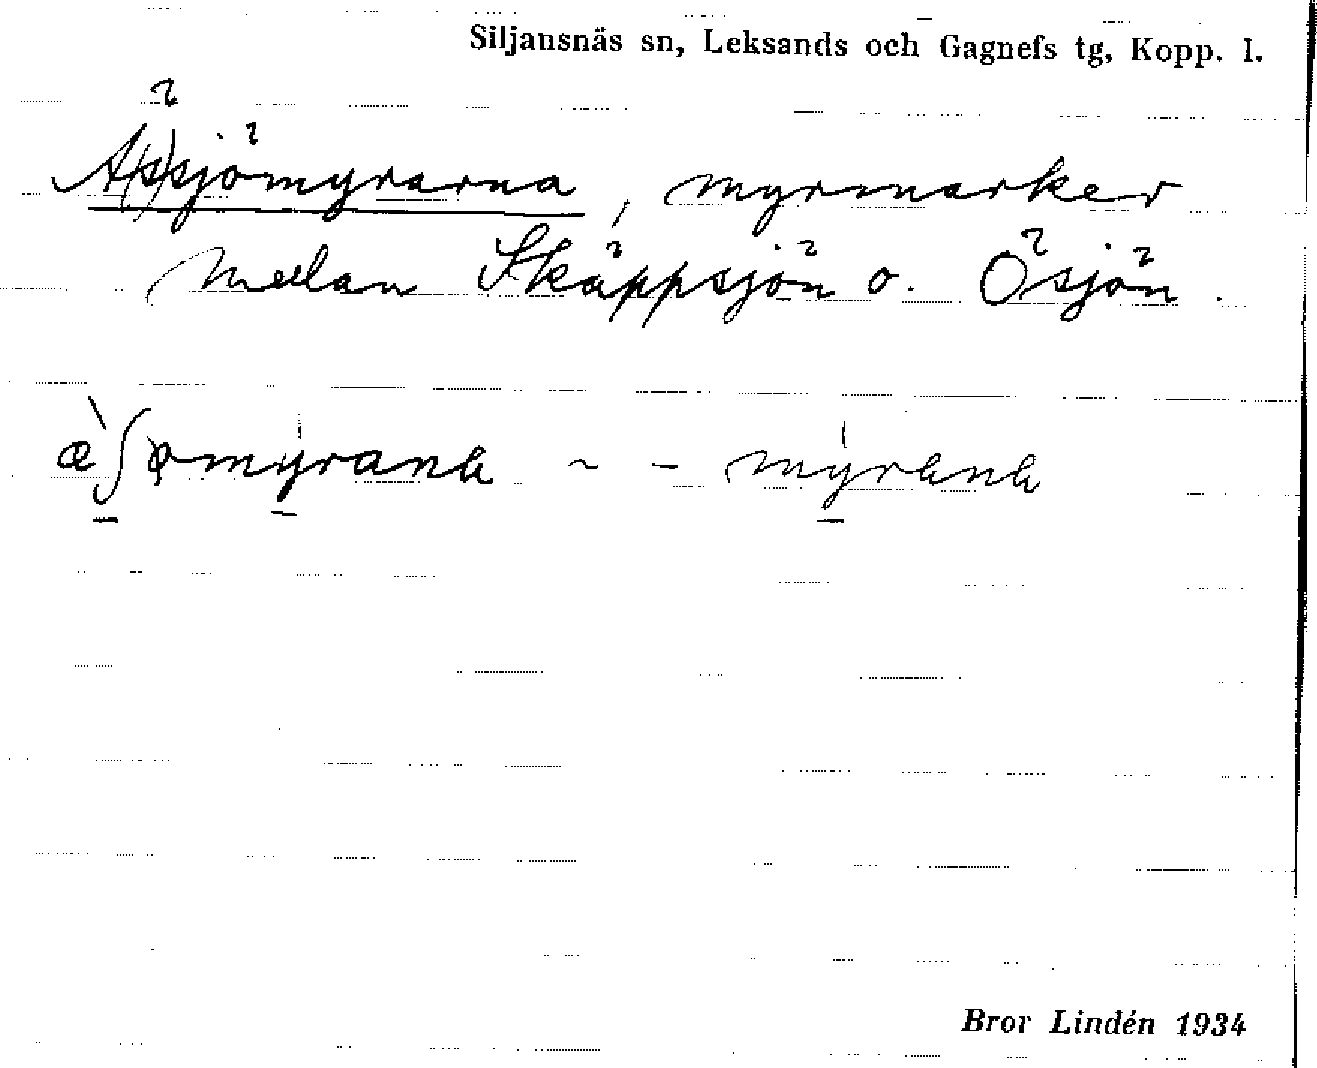 Siljansnäs sn, Leksands och Gagnefs tg, Kopp. l.
Ä(s)sjömyrarna, myrmarker
mellan Skäppsjön o. Ösjön.
Bror Lindén 1934